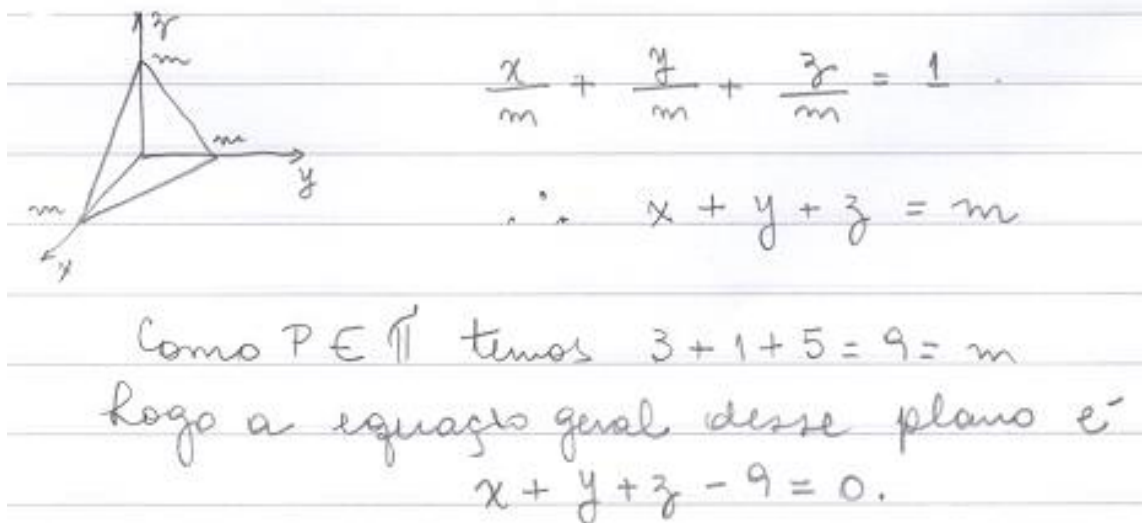 z
m
m
y
m
x
x/m + y/m + z/m = 1.
∴ x + y + z = m
Como P ∈ π temos 3 + 1 + 5 = 9 = m
Logo a equação geral desse plano é
x + y + z - 9 = 0.